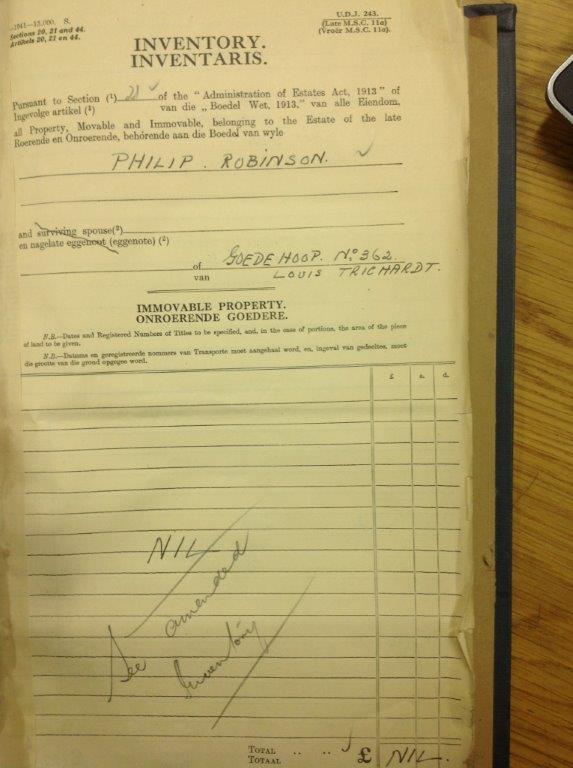 1941—15,000. S.
Sections 20, 21 and 44.
Artikels 20, 21 en 44.
U.D.J. 243.
(Late M.S.C. 11a)
(Vroër M.S.C. 11a).
INVENTORY.
INVENTARIS.
Pursuant to Section (¹) 21 of the "Administration of Estates Act, 1913" of
Ingevolge artikel (¹) van die „Boedel Wet, 1913." van alle Eiendom,
all Property, Movable and Immovable, belonging to the Estate of the late
Roerende en Onroerende, behörende aan die Boedel van wyle
PHILIP. ROBINSON.
and surviving spouse(²)
en nagelate eggenoot (eggenote) (²)
of GOEDEHOOP. No. 362.
van LOUIS TRICHARDT.
IMMOVABLE PROPERTY.
ONROERENDE GOEDERE.
N.B.—Dates and Registered Numbers of Titles to be specified, and, in the case of portions, the area of the piece
of land to be given.
N.B.—Datums en geregistreerde nommers van Transporte moet aangehaal word, en, ingeval van gedeeltes, moet
die grootte van die grond opgegee word.
£ s. d.
NIL
See amended
Inventory
TOTAL .. .. £ NIL.
TOTAAL